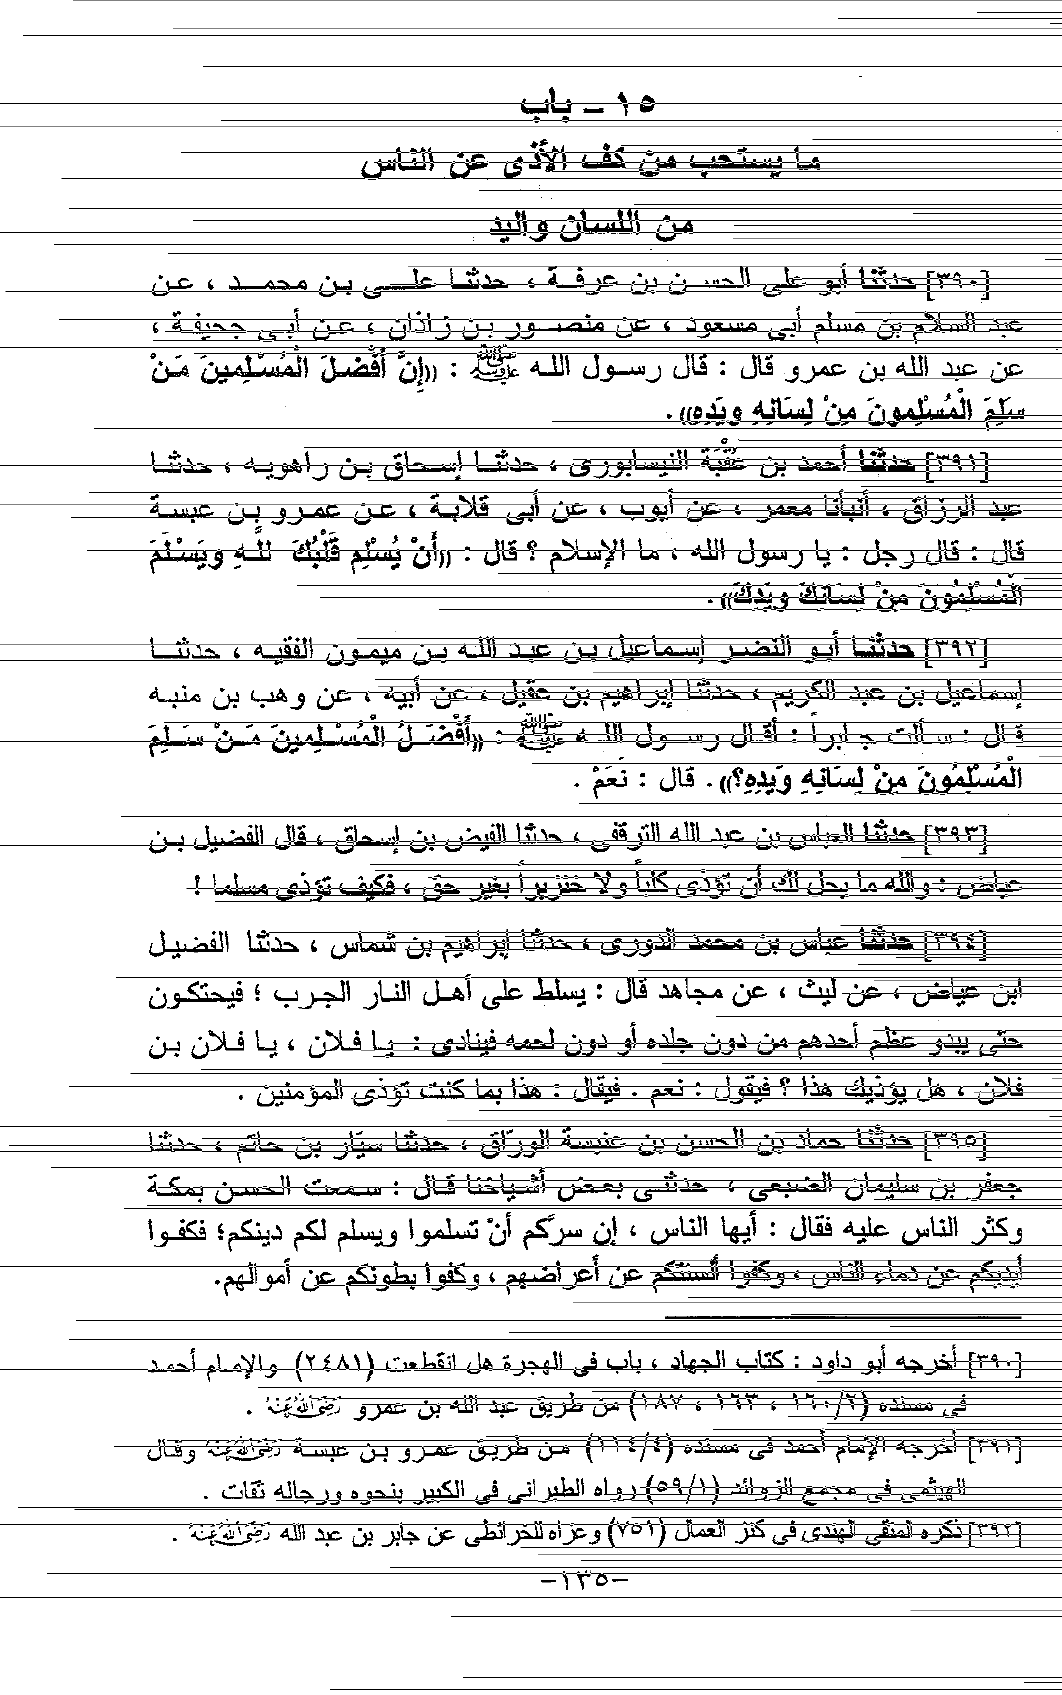 ١٥ - باب
ما يستحب من كف الأذى عن الناس
من اللسان واليد
[٣٩٠] حدثنا أبو على الحسن بن عرفة ، حدثنا علـى بن محمد ، عن
عبد السلام بن مسلم أبى مسعود ، عن منصور بن زاذان ، عن أبى جحيفة ،
عن عبد الله بن عمرو قال : قال رسول الله ﷺ : «إِنَّ أَفْضَلَ الْمُسْلِمِينَ مَنْ
سَلِمَ الْمُسْلِمونَ مِنْ لِسَانِهِ ويَدِهِ» .
[٣٩١] حدثنا أحمد بن عُقْبَة النيسابورى ، حدثنا إسحاق بن راهويه ، حدثنا
عبد الرزاق ، أنبأنا معمر ، عن أيوب ، عن أبى قلابة ، عن عمرو بن عبسة
قال : قال رجل : يا رسول الله ، ما الإسلام ؟ قال : «أَنْ يُسْلِم قَلْبُكَ للَّهِ ويَسْلَمَ
الْمُسْلِمُونَ مِنْ لِسَانكَ ويَدِكَ» .
[٣٩٢] حدثنا أبو النضر إسماعيل بن عبد الله بن ميمون الفقيه ، حدثنا
إسماعيل بن عبد الكريم ، حدثنا إبراهيم بن عقيل ، عن أبيه ، عن وهب بن منبه
قال : سألت جابراً : أقال رسول الله ﷺ : «أَفْضَلُ الْمُسْلِمِينَ مَنْ سَلِمَ
الْمُسْلِمُونَ مِنْ لِسَانِهِ وَيَدِهِ؟» . قال : نَعَمْ .
[٣٩٣] حدثنا العباس بن عبد الله الترقفى ، حدثنا الفيض بن إسحاق ، قال الفضيل بن
عياض : والله ما يحل لك أن تؤذى كلباً ولا خنزيراً بغير حق ، فكيف تؤذى مسلما !
[٣٩٤] حدثنا عباس بن محمد الدورى ، حدثنا إبراهيم بن شماس ، حدثنا الفضيل
ابن عياض ، عن ليث ، عن مجاهد قال : يسلط على أهل النار الجرب ؛ فيحتكون
حتى يبدو عظم أحدهم من دون جلده أو دون لحمه فينادى : يا فلان ، يا فلان بن
فلان ، هل يؤذيك هذا ؟ فيقول : نعم . فيقال : هذا بما كنت تؤذى المؤمنين .
[٣٩٥] حدثنا حماد بن الحسن بن عنبسة الورّاق ، حدثنا سيّار بن حاتم ، حدثنا
جعفر بن سليمان الضبعى ، حدثنى بعض أشياخنا قال : سمعت الحسن بمكة
وكثر الناس عليه فقال : أيها الناس ، إن سركم أنْ تسلموا ويسلم لكم دينكم؛ فكفوا
أيديكم عن دماء الناس ، وكفوا ألسنتكم عن أعراضهم ، وكفوا بطونكم عن أموالهم.
[٣٩٠] أخرجه أبو داود : كتاب الجهاد ، باب فى الهجرة هل انقطعت (٢٤٨١) والإمام أحمد
فى مسنده (١٦٠/٢ ، ١٦٣ ، ١٨٧) من طريق عبد الله بن عمرو رَضِيَ اللَّهُ عَنْهُ .
[٣٩١] أخرجه الإمام أحمد فى مسنده (١١٤/٤) من طريق عمرو بن عبسة رَضِيَ اللَّهُ عَنْهُ وقال
الهيثمى فى مجمع الزوائد (٥٩/١) رواه الطبرانى فى الكبير بنحوه ورجاله ثقات .
[٣٩٢] ذكره المتقى الهندى فى كنز العمال (٧٥١) وعزاه للخرائطى عن جابر بن عبد الله رَضِيَ اللَّهُ عَنْهُ .
-١٣٥-